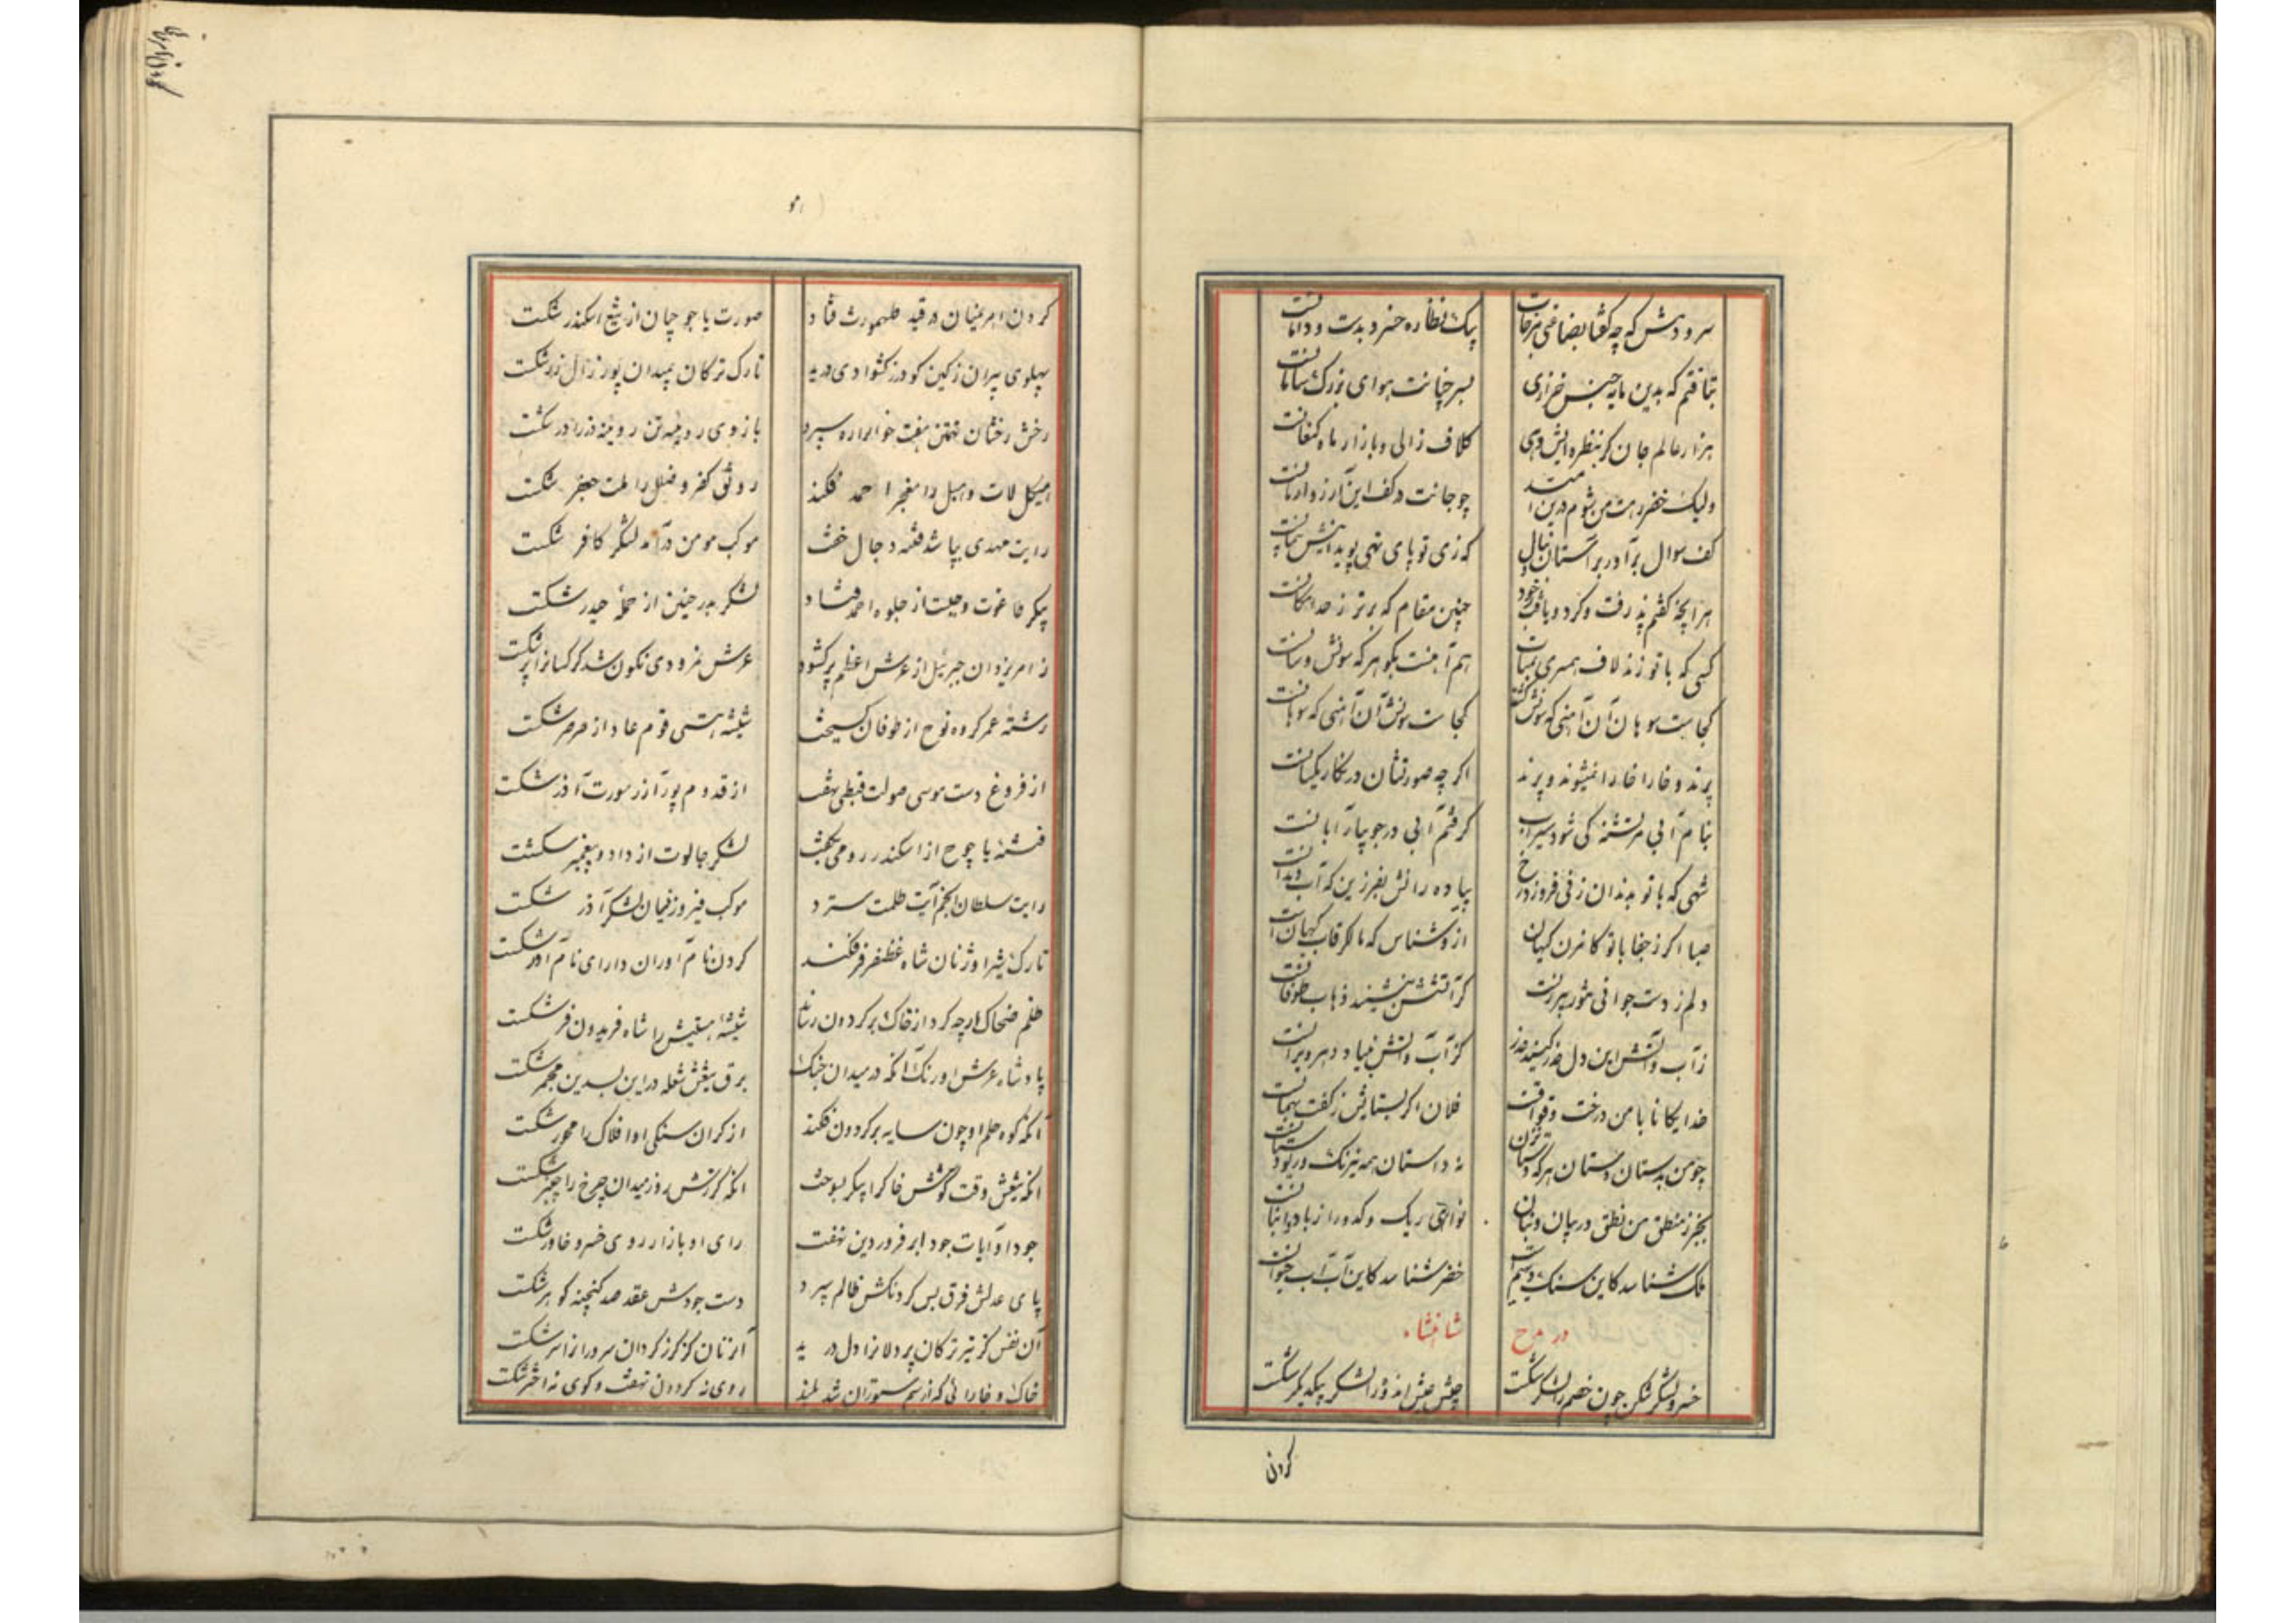 سرودمش که چه گوئا بضاعتی مزجات
بیک نظاره خرد بدست و دامانت
بتافتم که بدین مایه جنس خرازی
بسر چنانت هوای بزرگ سامانت
هزار عالم جان گر بنظره ایش دهی
کلاف زالی و بازار ماه کنعانت
ولیک خضر رهت من شوم درین
چو جانت در کف این آرزو ارمانت
کف سوال برآور بر آستان
که زی تو پای نهی پوید
هر آنچه گفتم پذرفت و کرد و یافت خود
چنین مقام که برتر ز حد امکانست
کسی که با تو زند لاف همسری
هم آهنست بگو هر که سونش و
کجاست سوهان آن آهنی که سونش گشت
کجاست سونش آن آهنی که سوهانست
پرند و خارا خارا نمیشوند و پرند
اگر چه صورتشان در نگار یکسانست
بنام آبی مر تشنه کی شود سیراب
گرفتم آبی در جویبار آبانست
شهی که با تو بدندان زنی فروزد رخ
پیاده رانش بفرزین که آب دندانست
صبا اگر ز جفا با تو کافرن کیهان
ازو شناس که مالک رقاب کیهانست
دلم ز دست جوانی
گر آتشش ننشیند ذهاب طوفانست
ز آب و آتش این دل حذر کنید حذر
کز آب و آتش بنیاد دهر ویرانست
خدایگانا با من درخت
فلان اگر بستایش ز گفت بهمانست
چو من بدستان دستان هر که
نه داستان همه نیرنگ و ریو دستانست
بجز ز منطق من نطق در بیان و بنان
نوائی ریک و کدو را ز باد
ملک شناسد کاین سنگ و سیم
خضر شناسد کاین آب آب حیوانست
در مدح
شاهنشاه
خسرو لشکر شکن چون خصم را لشکر شکست
جیش عیش اندوز را لشکر بیکدیگر شکست
کردن
گردن اهریمنان در قید طهمورث فتاد
صورت یاجوجیان از تیغ اسکندر شکست
پهلوی پیران ز کین گودرز کشوادی درید
تارک ترکان بمیدان پور زال زر شکست
رخش رخشان تهمتن هفت خوان را ره سپرد
بازوی رویینه تن رویینه دز را در شکست
هیکل لات و هبل را معجز احمد فکند
رونق کفر و ضلل را ملت جعفر شکست
رایت مهدی بپا شد فتنه دجال خفت
موکب مومن درآمد لشکر کافر شکست
پیکر طاغوت و جبت از جلوه احمد فتاد
لشکر بدر و حنین از حمله حیدر شکست
ز امر یزدان جبرئیل از عرش اعظم پر گشود
عرش نمرودی نگون شد کرکسانرا پر شکست
رشته عمر گروه نوح از طوفان گسیخت
شیشه هستی قوم عاد از صرصر شکست
از فروغ دست موسی صولت قبطی نهفت
از قدوم پور آزر سورت آذر شکست
فتنه یاجوج از اسکندر رومی بخفت
لشکر جالوت از داود پیغمبر شکست
رایت سلطان انجم آیت ظلمت سترد
موکب فیروز فیان لشکر آذر شکست
تارک شیر اوژنان شاه غضنفر فر فکند
گردن نام آوران دارای نام آور شکست
ظلم ضحاک ارچه گرد از خاک بر گردون رساند
شیشه هستیش را شاه فریدون فر شکست
پادشاه عرش اورنگ آنکه در میدان جنگ
برق تیغش شعله در این بسدین مجمر شکست
آنکه کوه حلم او چون سایه بر گردون فکند
از گران سنگی او افلاک را محور شکست
آنکه تیغش وقت کوشش خاک را پیکر بسوخت
آنکه گرزش روز میدان چرخ را چنبر شکست
جود او آیات جود ابر فروردین نهفت
رای او بازار روی خسرو خاور شکست
پای عدلش فرق بس گردنکش ظالم سپرد
دست جودش عقد صد گنجینه گوهر شکست
آن نفس کز تیر ترکان پر دلانرا دل درید
آنزمان کز گرز گردان سرورانرا سر شکست
خاک و خارائی که از سم ستوران شد بلند
روی نه گردون نهفت و گوی نه اختر شکست